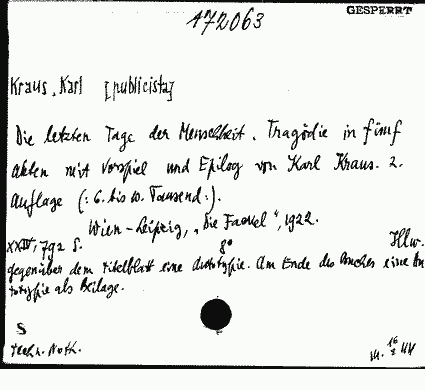 172063
GESPERRT
Kraus, Karl [publicista]
Die letzten Tage der Menschheit. Tragödie in fünf
Akten mit Vorspiel und Epilog von Karl Kraus. 2.
Auflage (: 6. bis 10. Tausend :).
Wien-Leipzig, „Die Fackel“, 1922.
XXIV, 792 S. 8° Hlw.
gegenüber dem Titelblatt eine Autotypie. Am Ende des Buches eine Au
totypie als Beilage.
S
Techn. Noth.